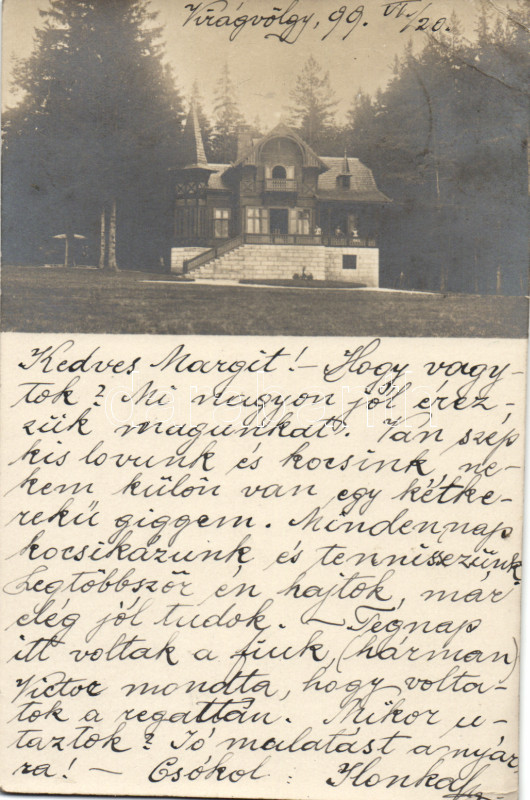 Virágvölgy, 99. VI/20.
Kedves Margit! – Hogy vagy-
tok? Mi nagyon jól érez-
zük magunkat. Van szép
kis lovunk és kocsink, ne-
kem külön van egy kétke-
rekű giggem. Mindennap
kocsikázunk és tennissezünk.
Legtöbbször én hajtok, már
elég jól tudok. – Tegnap
itt voltak a fiuk, (hárman)
Victor mondta, hogy volta-
tok a regattán. Mikor u-
taztok? Jó mulatást a nyár-
ra! – Csókol: Ilonka